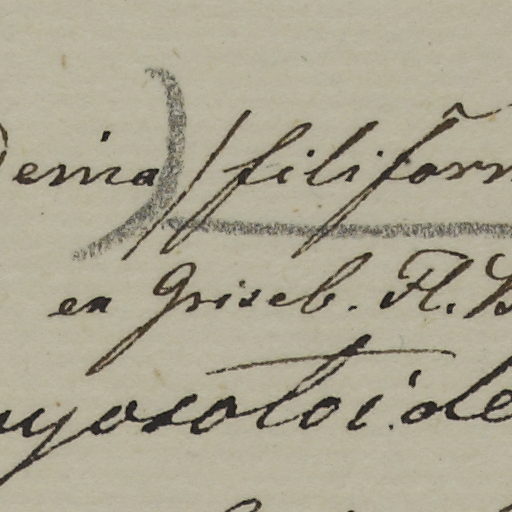 emia) / filiform
ex Griseb. Fl. B
yosotoide